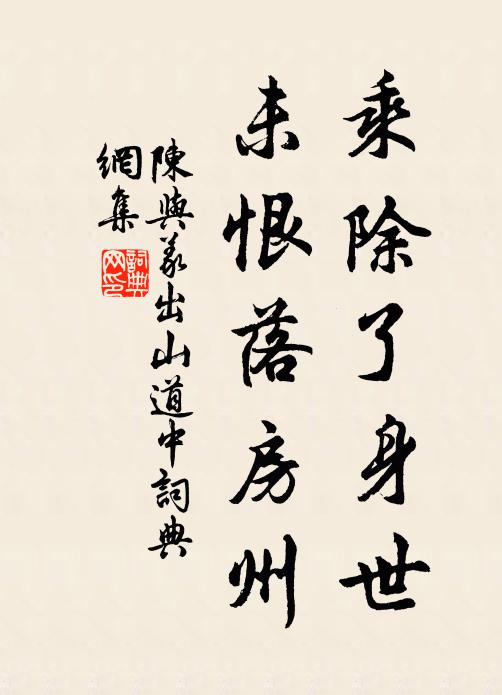 乘除了身世
未恨落房州
陳與義出山道中詞典
網集
詞典網印